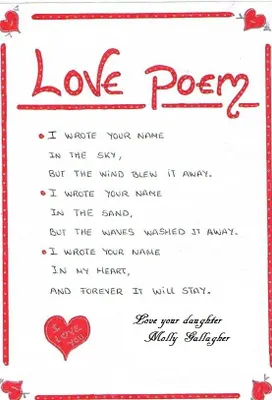 LOVE POEM
I WROTE YOUR NAME
IN THE SKY,
BUT THE WIND BLEW IT AWAY.
I WROTE YOUR NAME
IN THE SAND,
BUT THE WAVES WASHED IT AWAY.
I WROTE YOUR NAME
IN MY HEART,
AND FOREVER IT WILL STAY.
Love your daughter
Molly Gallagher
I
LOVE
YOU